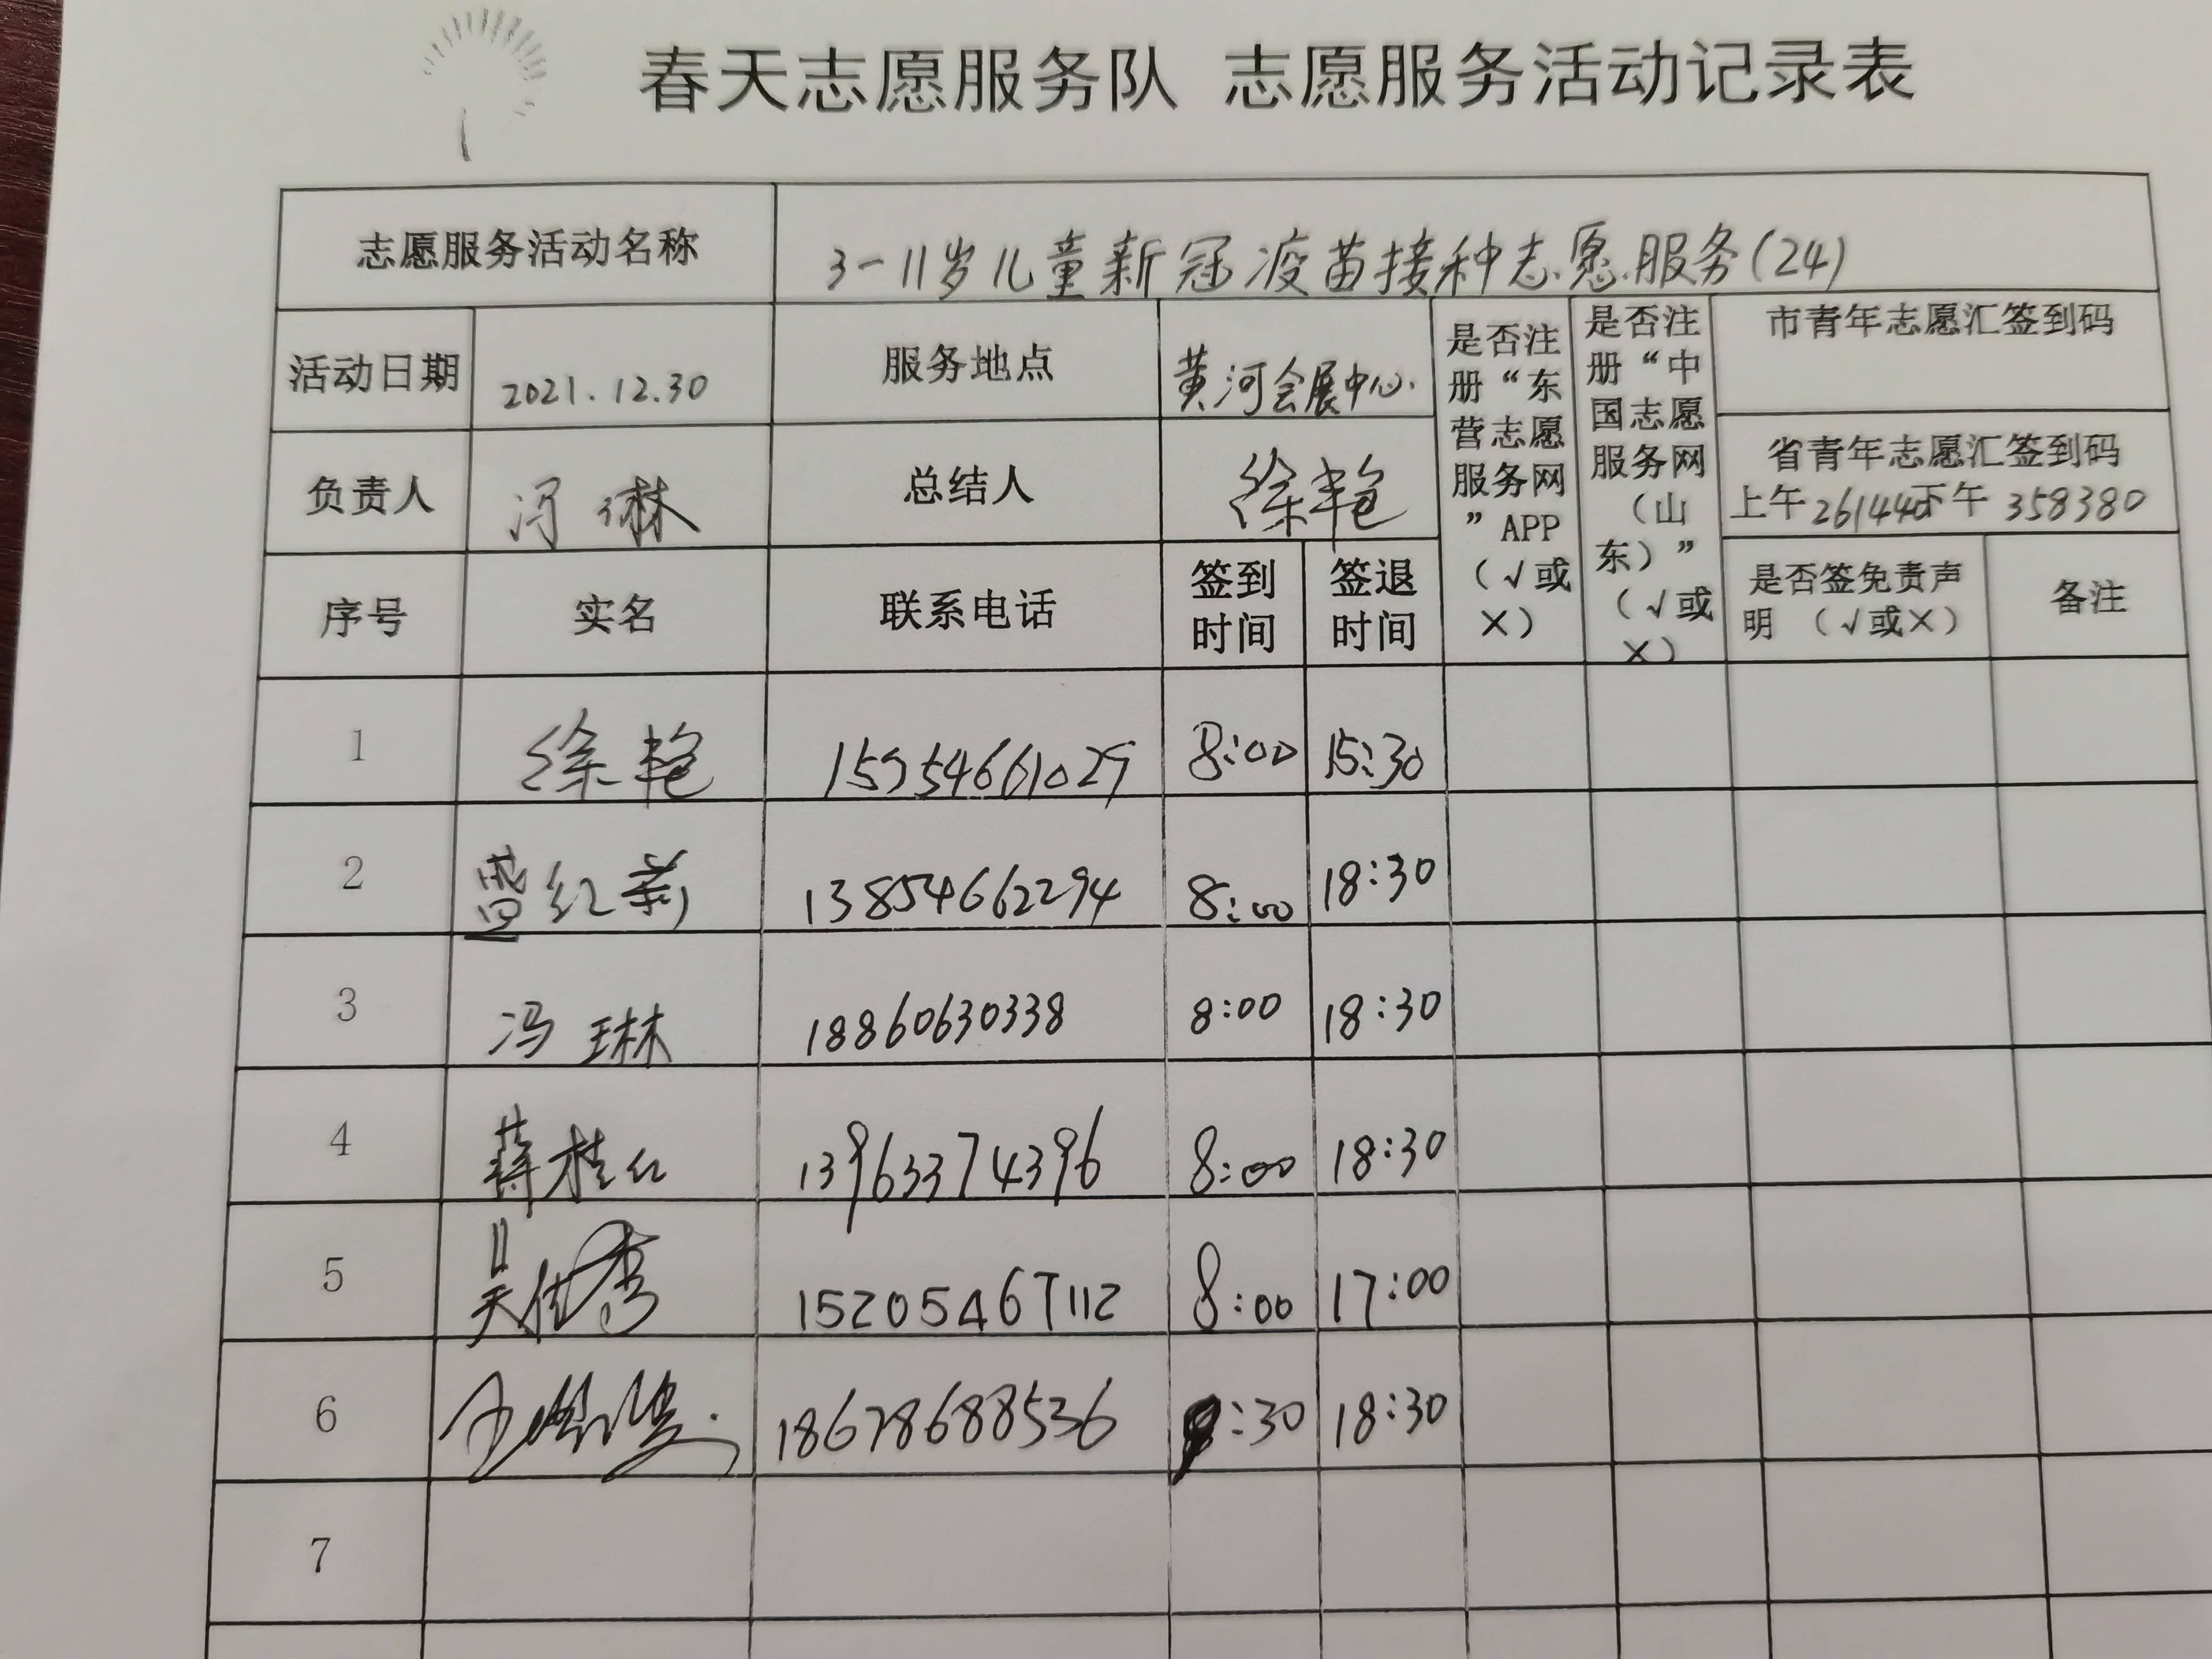 春天志愿服务队 志愿服务活动记录表
志愿服务活动名称 3-11岁儿童新冠疫苗接种志愿服务(24)
活动日期 2021.12.30 服务地点 黄河会展中心
是否注册“东营志愿服务网”APP（√或×）
是否注册“中国志愿服务网（山东）”（√或×）
市青年志愿汇签到码
负责人 冯琳 总结人 徐艳
省青年志愿汇签到码
上午261440下午358380
序号 实名 联系电话 签到时间 签退时间 是否签免责声明（√或×） 备注
1 徐艳 15954661029 8:00 15:30
2 曹红莉 13854662294 8:00 18:30
3 冯琳 18860630338 8:00 18:30
4 蒋桂红 13963374396 8:00 18:30
5 吴佳秀 15205467112 8:00 17:00
6 18678688536 :30 18:30
7